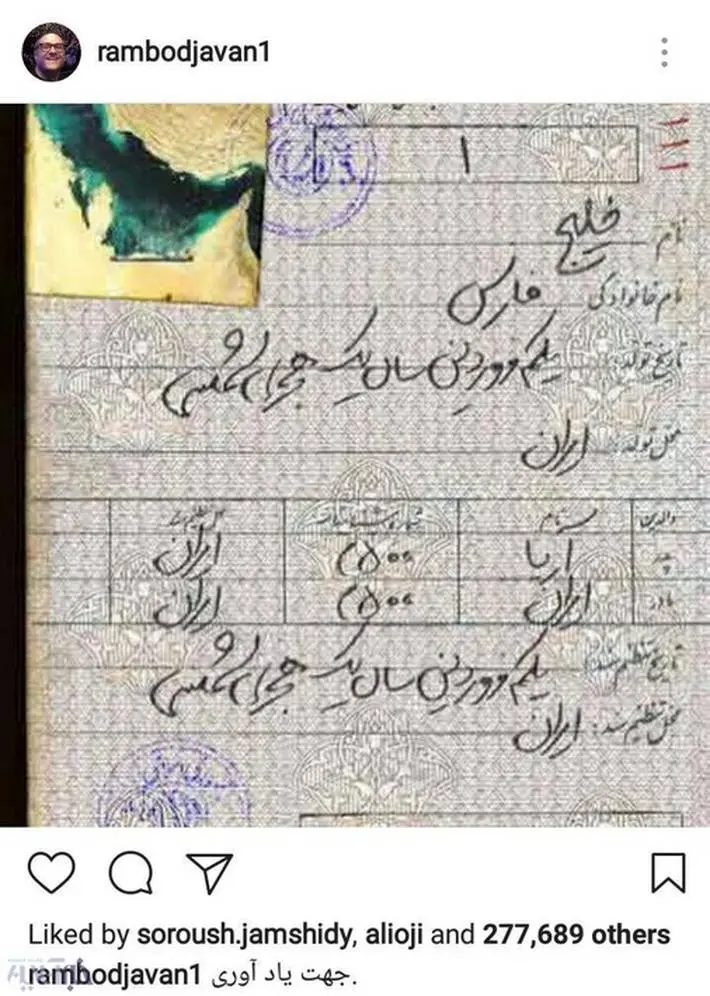 rambodjavan1
۱
نام خلیج
نام خانوادگی فارس
تاریخ تولد: یکم فروردین سال یک هجری شمسی
محل تولد: ایران
والدین نام شماره شناسنامه محل تنظیم سند
پدر آریا ۲۵۰۰ ایران
مادر ایران ۲۵۰۰ ایران
تاریخ تنظیم سند: یکم فروردین سال یک هجری شمسی
محل تنظیم سند: ایران
Liked by soroush.jamshidy, alioji and 277,689 others
rambodjavan1 جهت یاد آوری.